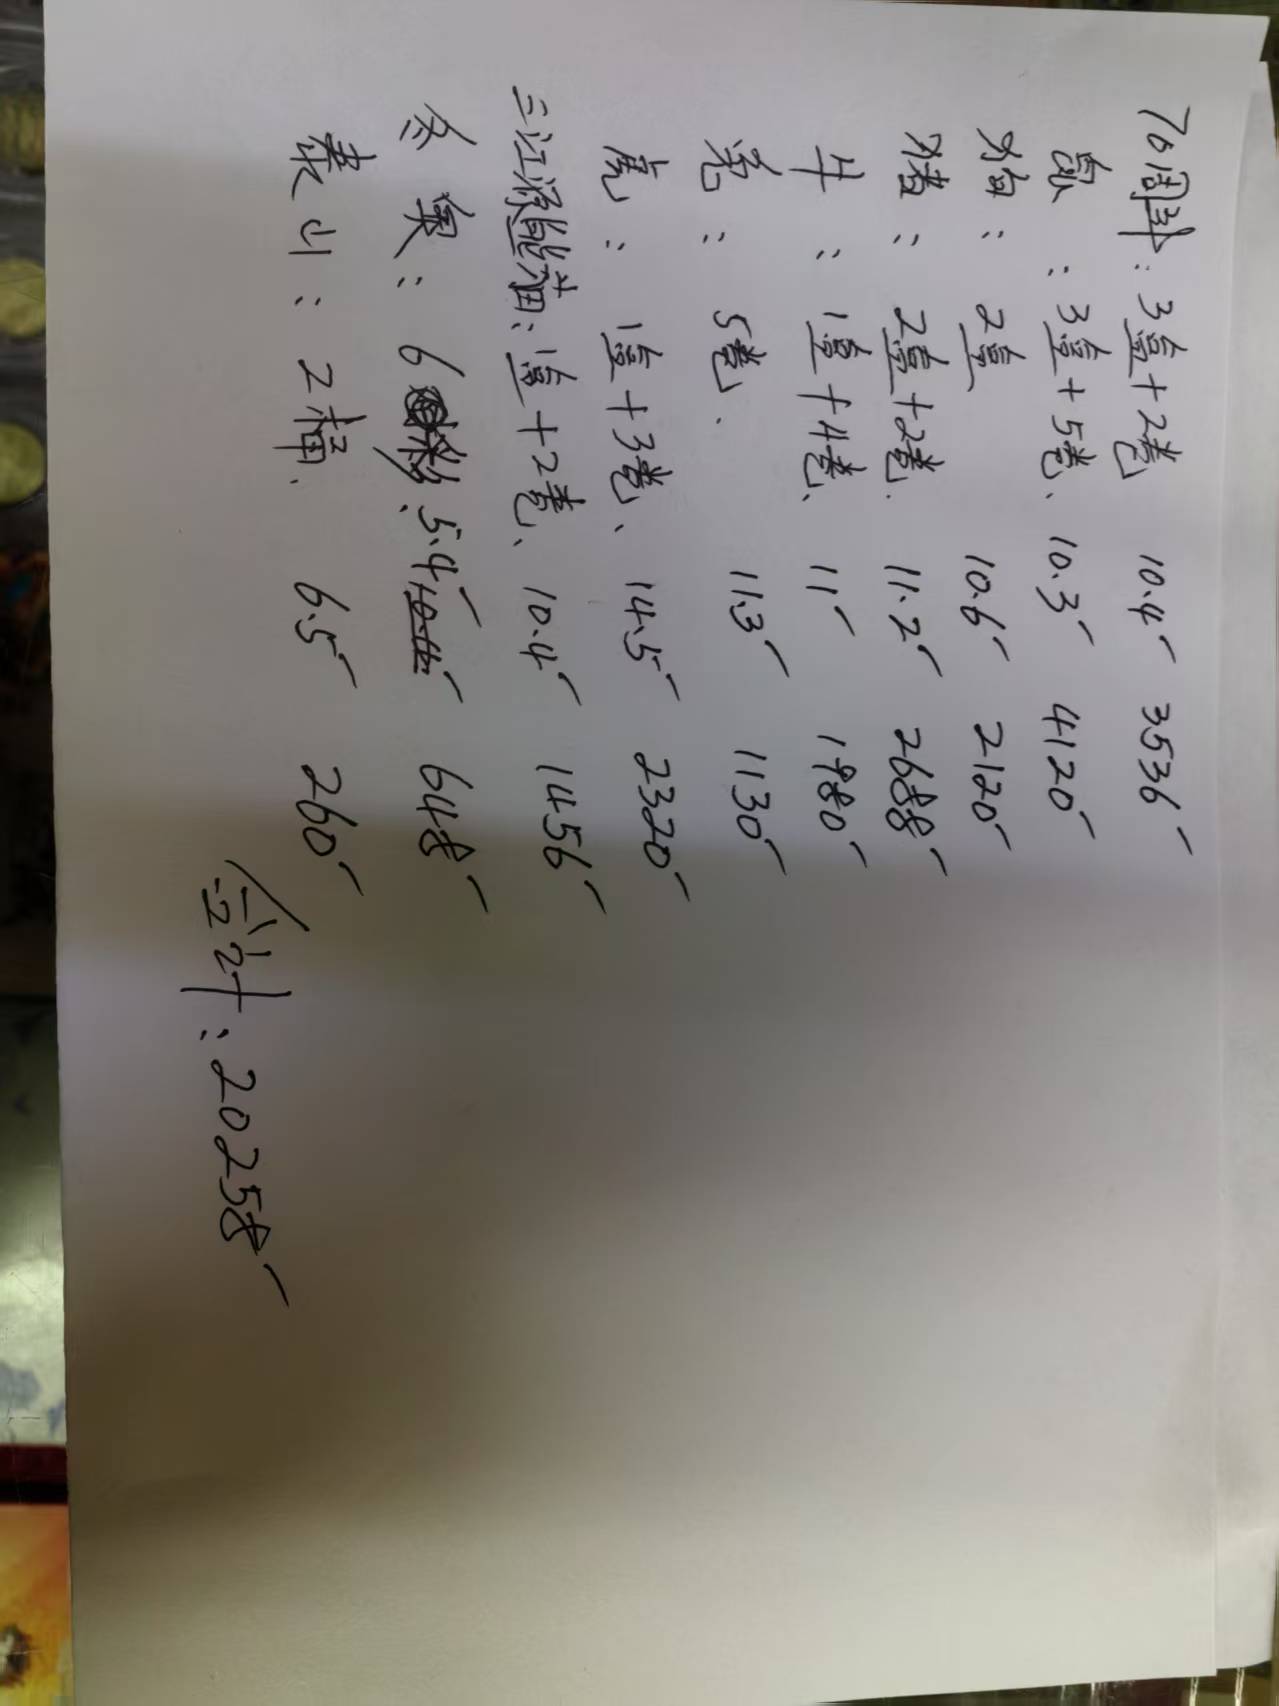 70周年：3盒+2卷 10.4 3536
鼠：3盒+5卷、10.3 4120
狗：2盒 10.6 2120
猪：2盒+2卷. 11.2 2688
牛：1盒+4卷、11 1980
羌：5卷. 11.3 1130
虎：1盒+3卷、14.5 2320
三江源熊猫：1盒+2卷、10.4 1456
冬奥：6 5.4 648
泰山：2 6.5 260
合计：20258